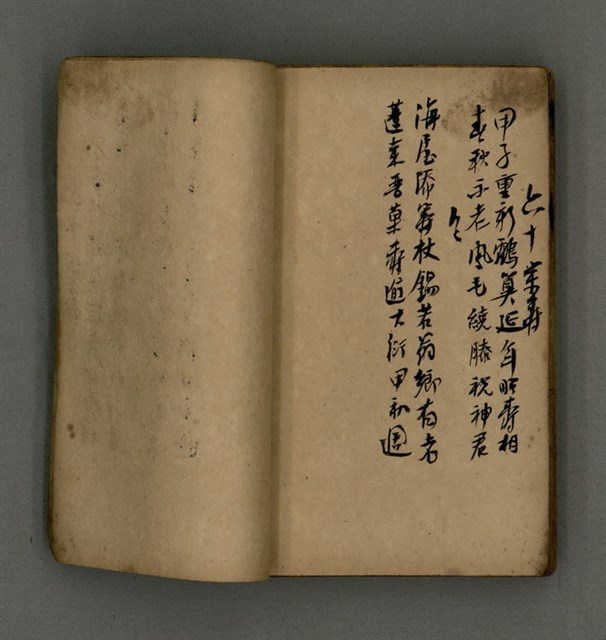 六十帝壽
甲子重新鶴算延年昭壽相
春秋不老鳳毛繞膝祝神君
海屋添籌杖錫若翁鄉有老
蓬萊晉菓壽過大衍甲初週